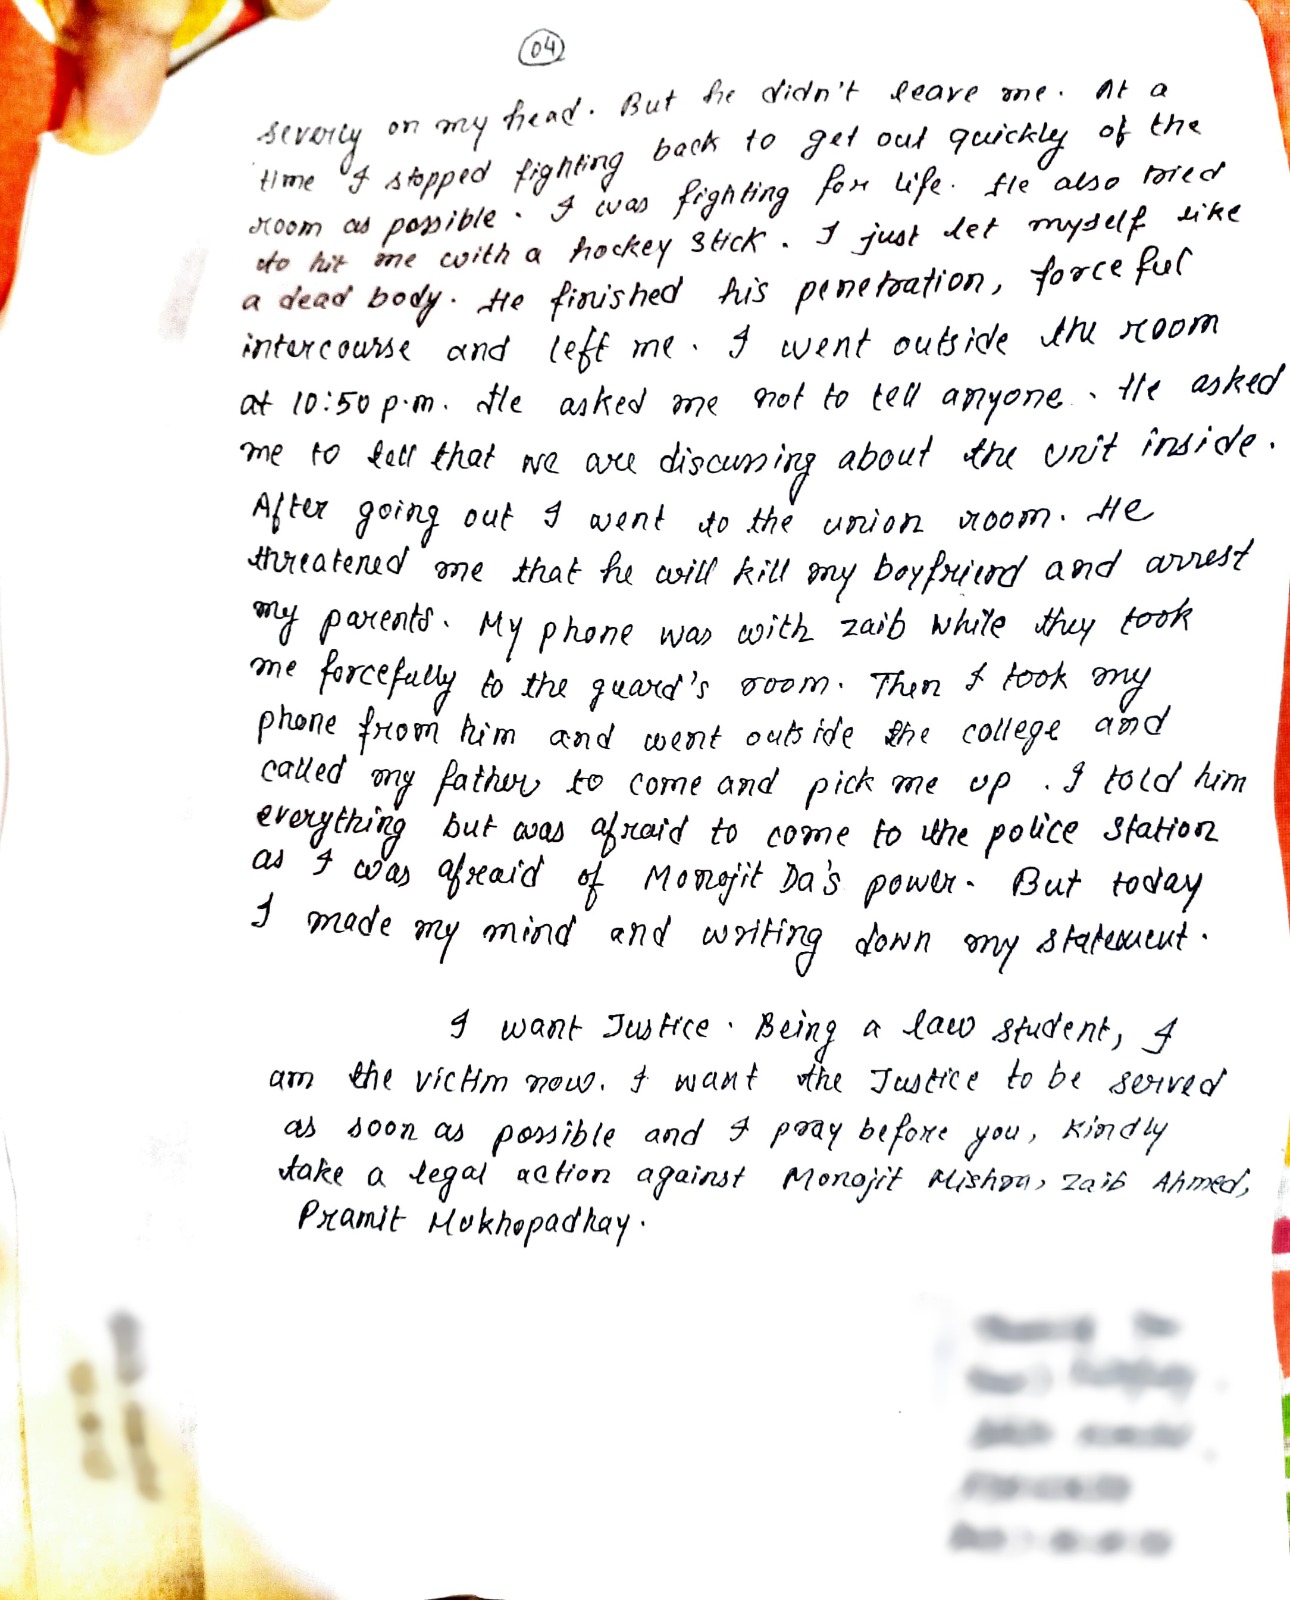 04
severly on my head. But he didn't leave me. At a
time I stopped fighting back to get out quickly of the
room as possible. I was fighting for life. He also tried
to hit me with a hockey stick. I just let myself like
a dead body. He finished his penetration, forceful
intercourse and left me. I went outside the room
at 10:50 p.m. He asked me not to tell anyone. He asked
me to tell that we are discussing about the unit inside.
After going out I went to the union room. He
threatened me that he will kill my boyfriend and arrest
my parents. My phone was with zaib while they took
me forcefully to the guard's room. Then I took my
phone from him and went outside the college and
called my father to come and pick me up. I told him
everything but was afraid to come to the police station
as I was afraid of Monojit Da's power. But today
I made my mind and writing down my statement.
I want Justice. Being a law student, I
am the victim now. I want the Justice to be served
as soon as possible and I pray before you, Kindly
take a legal action against Monojit Mishra, zaib Ahmed,
Pramit Mukhopadhay.